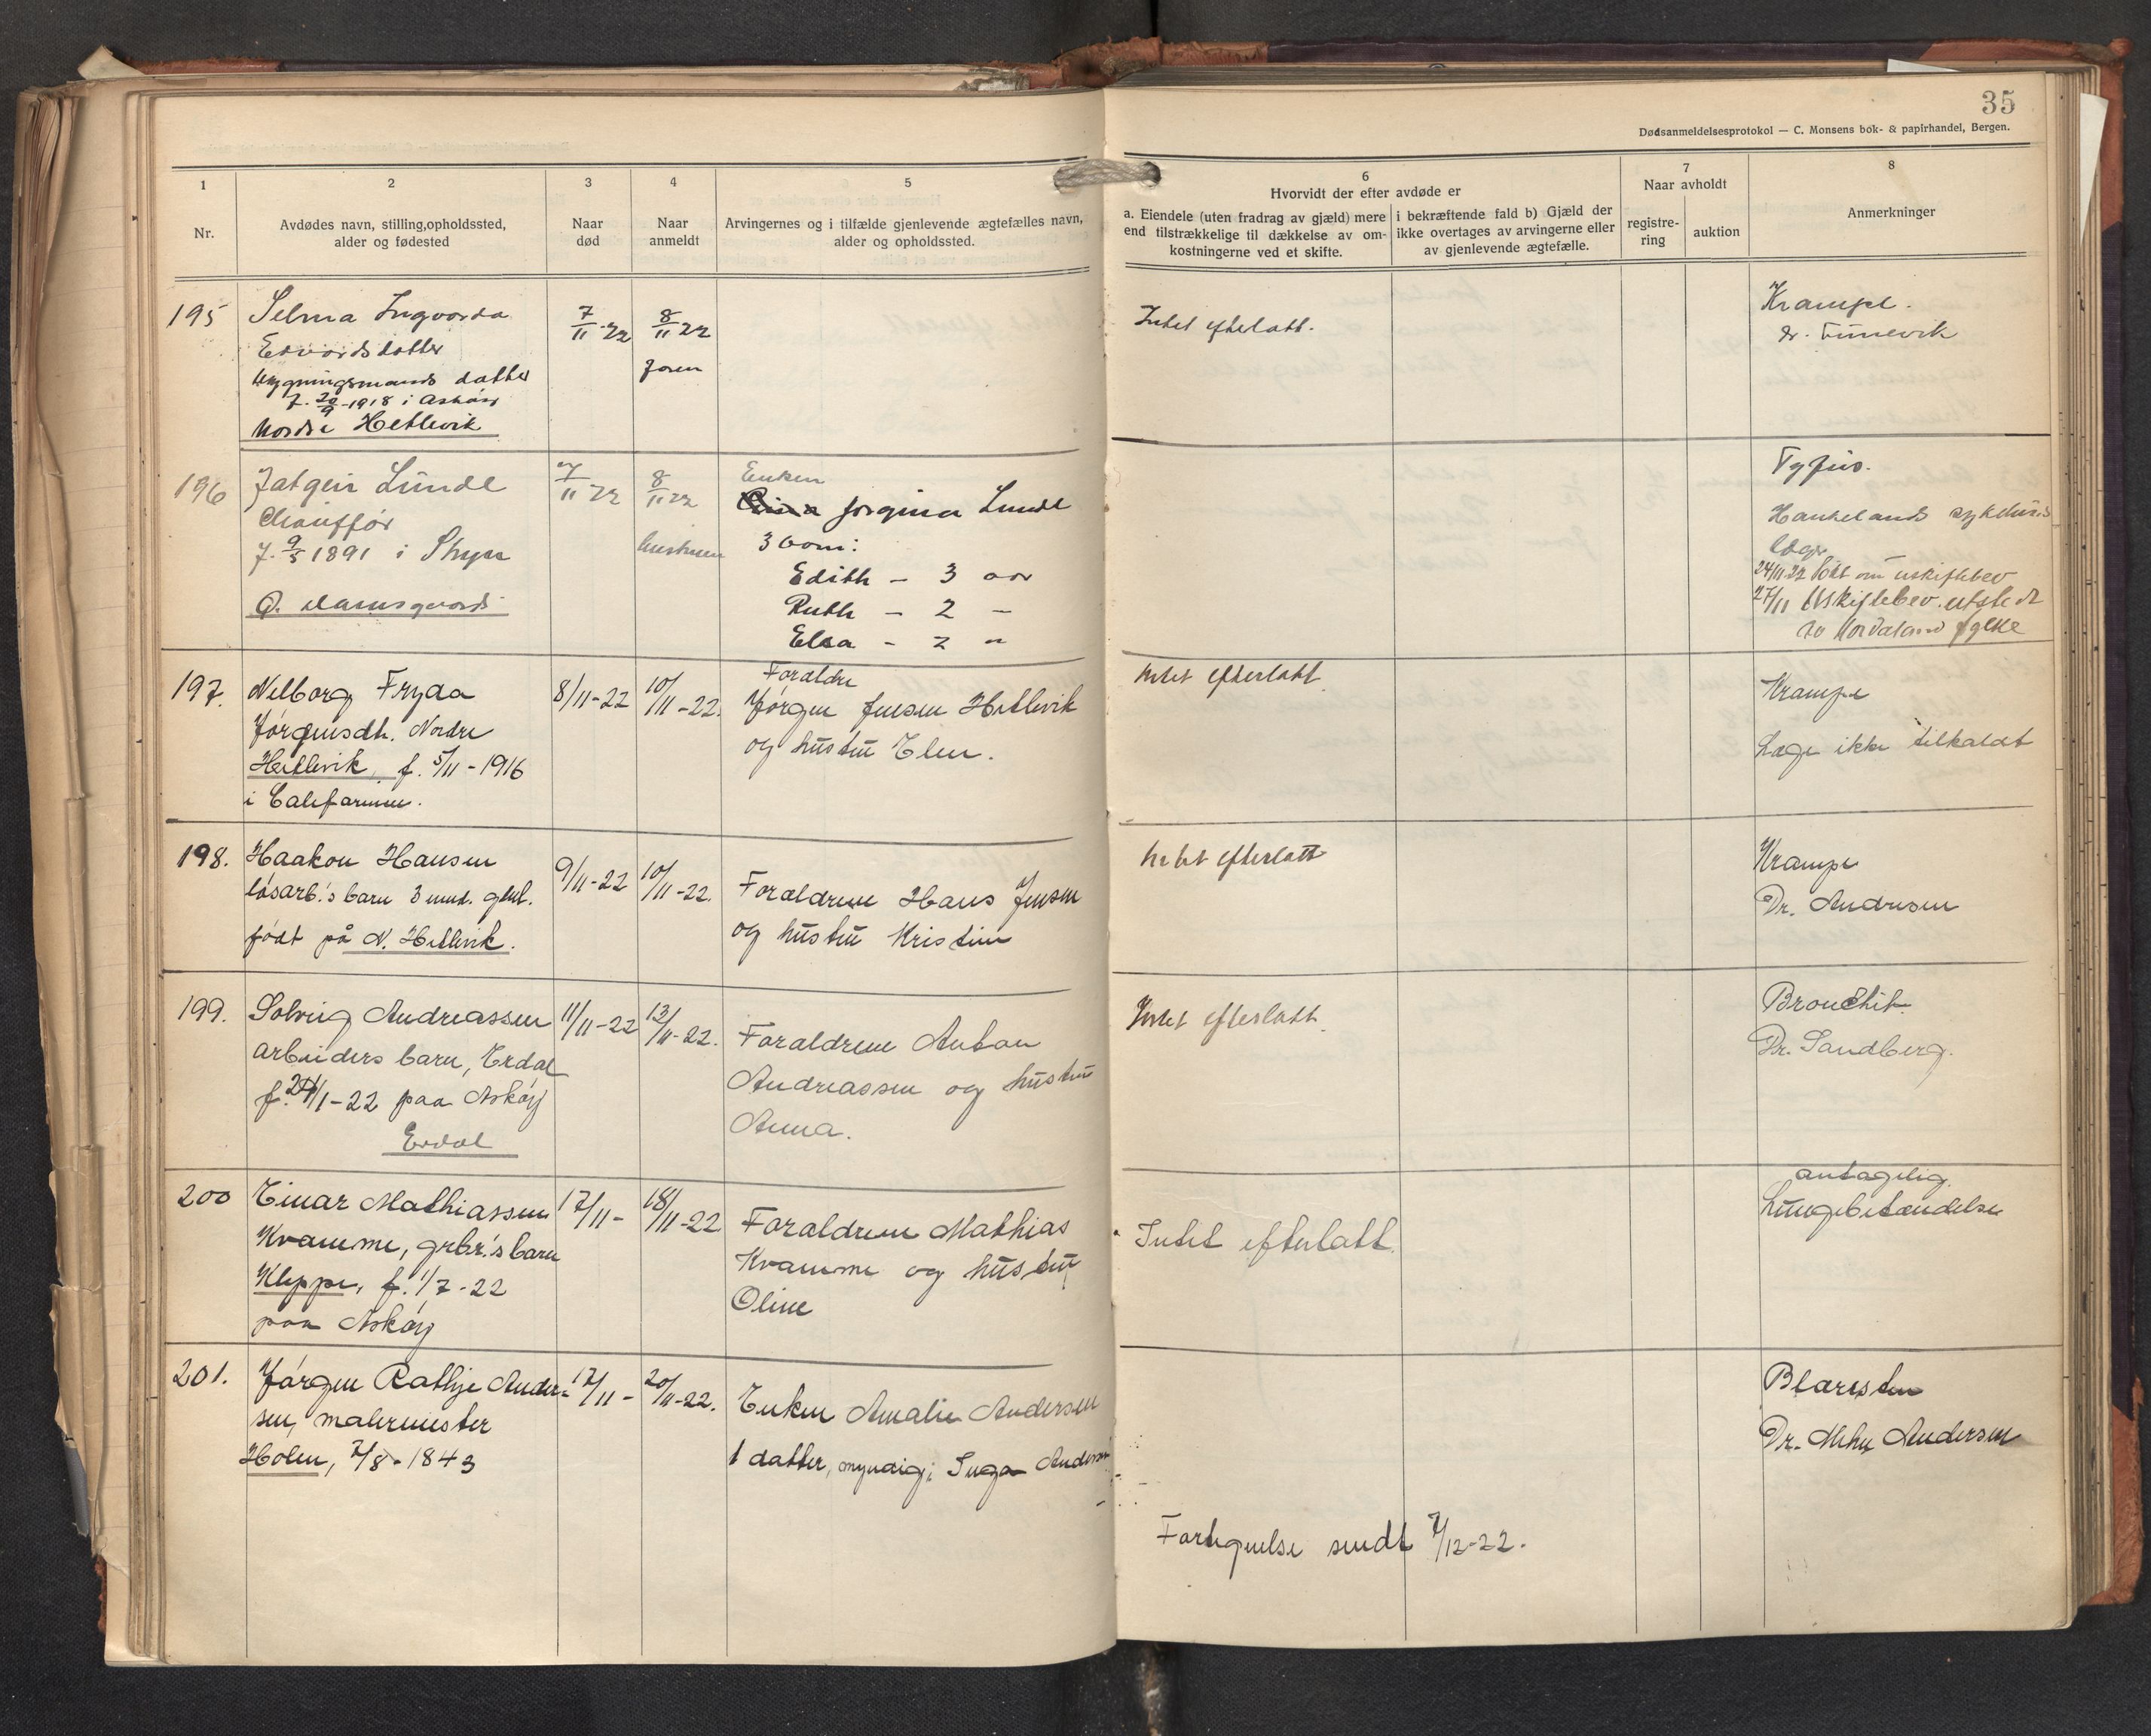 35
Dødsanmeldelsesprotokol — C. Monsens bok- & papirhandel, Bergen.
1
Nr.
2
Avdødes navn, stilling, opholdssted,
alder og fødested
3
Naar
død
4
Naar
anmeldt
5
Arvingernes og i tilfælde gjenlevende ægtefælles navn,
alder og opholdssted.
6
Hvorvidt der efter avdøde er
a. Eiendele (uten fradrag av gjæld) mere
end tilstrækkelige til dækkelse av om-
kostningerne ved et skifte.
i bekræftende fald b) Gjæld der
ikke overtages av arvingerne eller
av gjenlevende ægtefælle.
7
Naar avholdt
registre-
ring
auktion
8
Anmerkninger
195
Selma Ingvorda
Edvardsdatter
bygningsmands datter
f. 20/9-1918 i Askøy
Nordre Hetlevik
7/11-22
8/11 22
Intet efterlatt.
Krampe.
dr.
196
Jatgeir Lunde
Chauffør
f. 9/5 1891 i Stryn
Ø. Damsgaard
7/11-22
8/11 22
hustruen
Enken
Jorgina Lunde
3 barn:
Edith — 3 aar
Ruth — 2 —
Elsa — 2 "
Tyfus.
Haukelands sykehus
læge
24/11-22 søkt om uskiftebev
27/11 Uskiftebev. utstedt
av Hordaland fylke
197.
Nelborg Fryda
Jørgensdtr. Nordre
Hetlevik, f. 5/11-1916
i Californien.
8/11-22
10/11-22.
Forældre
Jørgen Jensen Hetlevik
og hustru Elen.
Intet efterlatt
Krampe
Læge ikke tilkaldt
198.
Haakon Hansen
løsarb.'s barn 3 mnd. gml.
født på N. Hetlevik.
9/11-22
10/11-22.
Forældrene Hans Jensen
og hustru Kristine
Intet efterlatt
Krampe
Dr. Andresen
199.
Solveig Andreassen
arbeiders barn, Erdal
f. 24/1-22 paa Askøy
Erdal
11/11-22
13/11-22.
Forældrene Anton
Andreassen og hustru
Anna.
Intet efterlatt.
Bronchit
Dr. Sandberg.
200
Einar Mathiassen
Kvamme, grbr.'s barn
Kleppe, f. 1/7-22
paa Askøy
17/11-
18/11-22
Forældrene Mathias
Kvamme og hustru
Oline
Intet efterlatt.
antagelig
Lungebetændelse
201.
Jørgen Rathje Ander-
sen, malermester
Holen, 7/8-1843
17/11-
20/11-22.
Enken Amalie Andersen
1 datter, myndig; Inga Andersen
Fortegnelse sendt 7/12-22.
Blæresten
Dr. Andersen